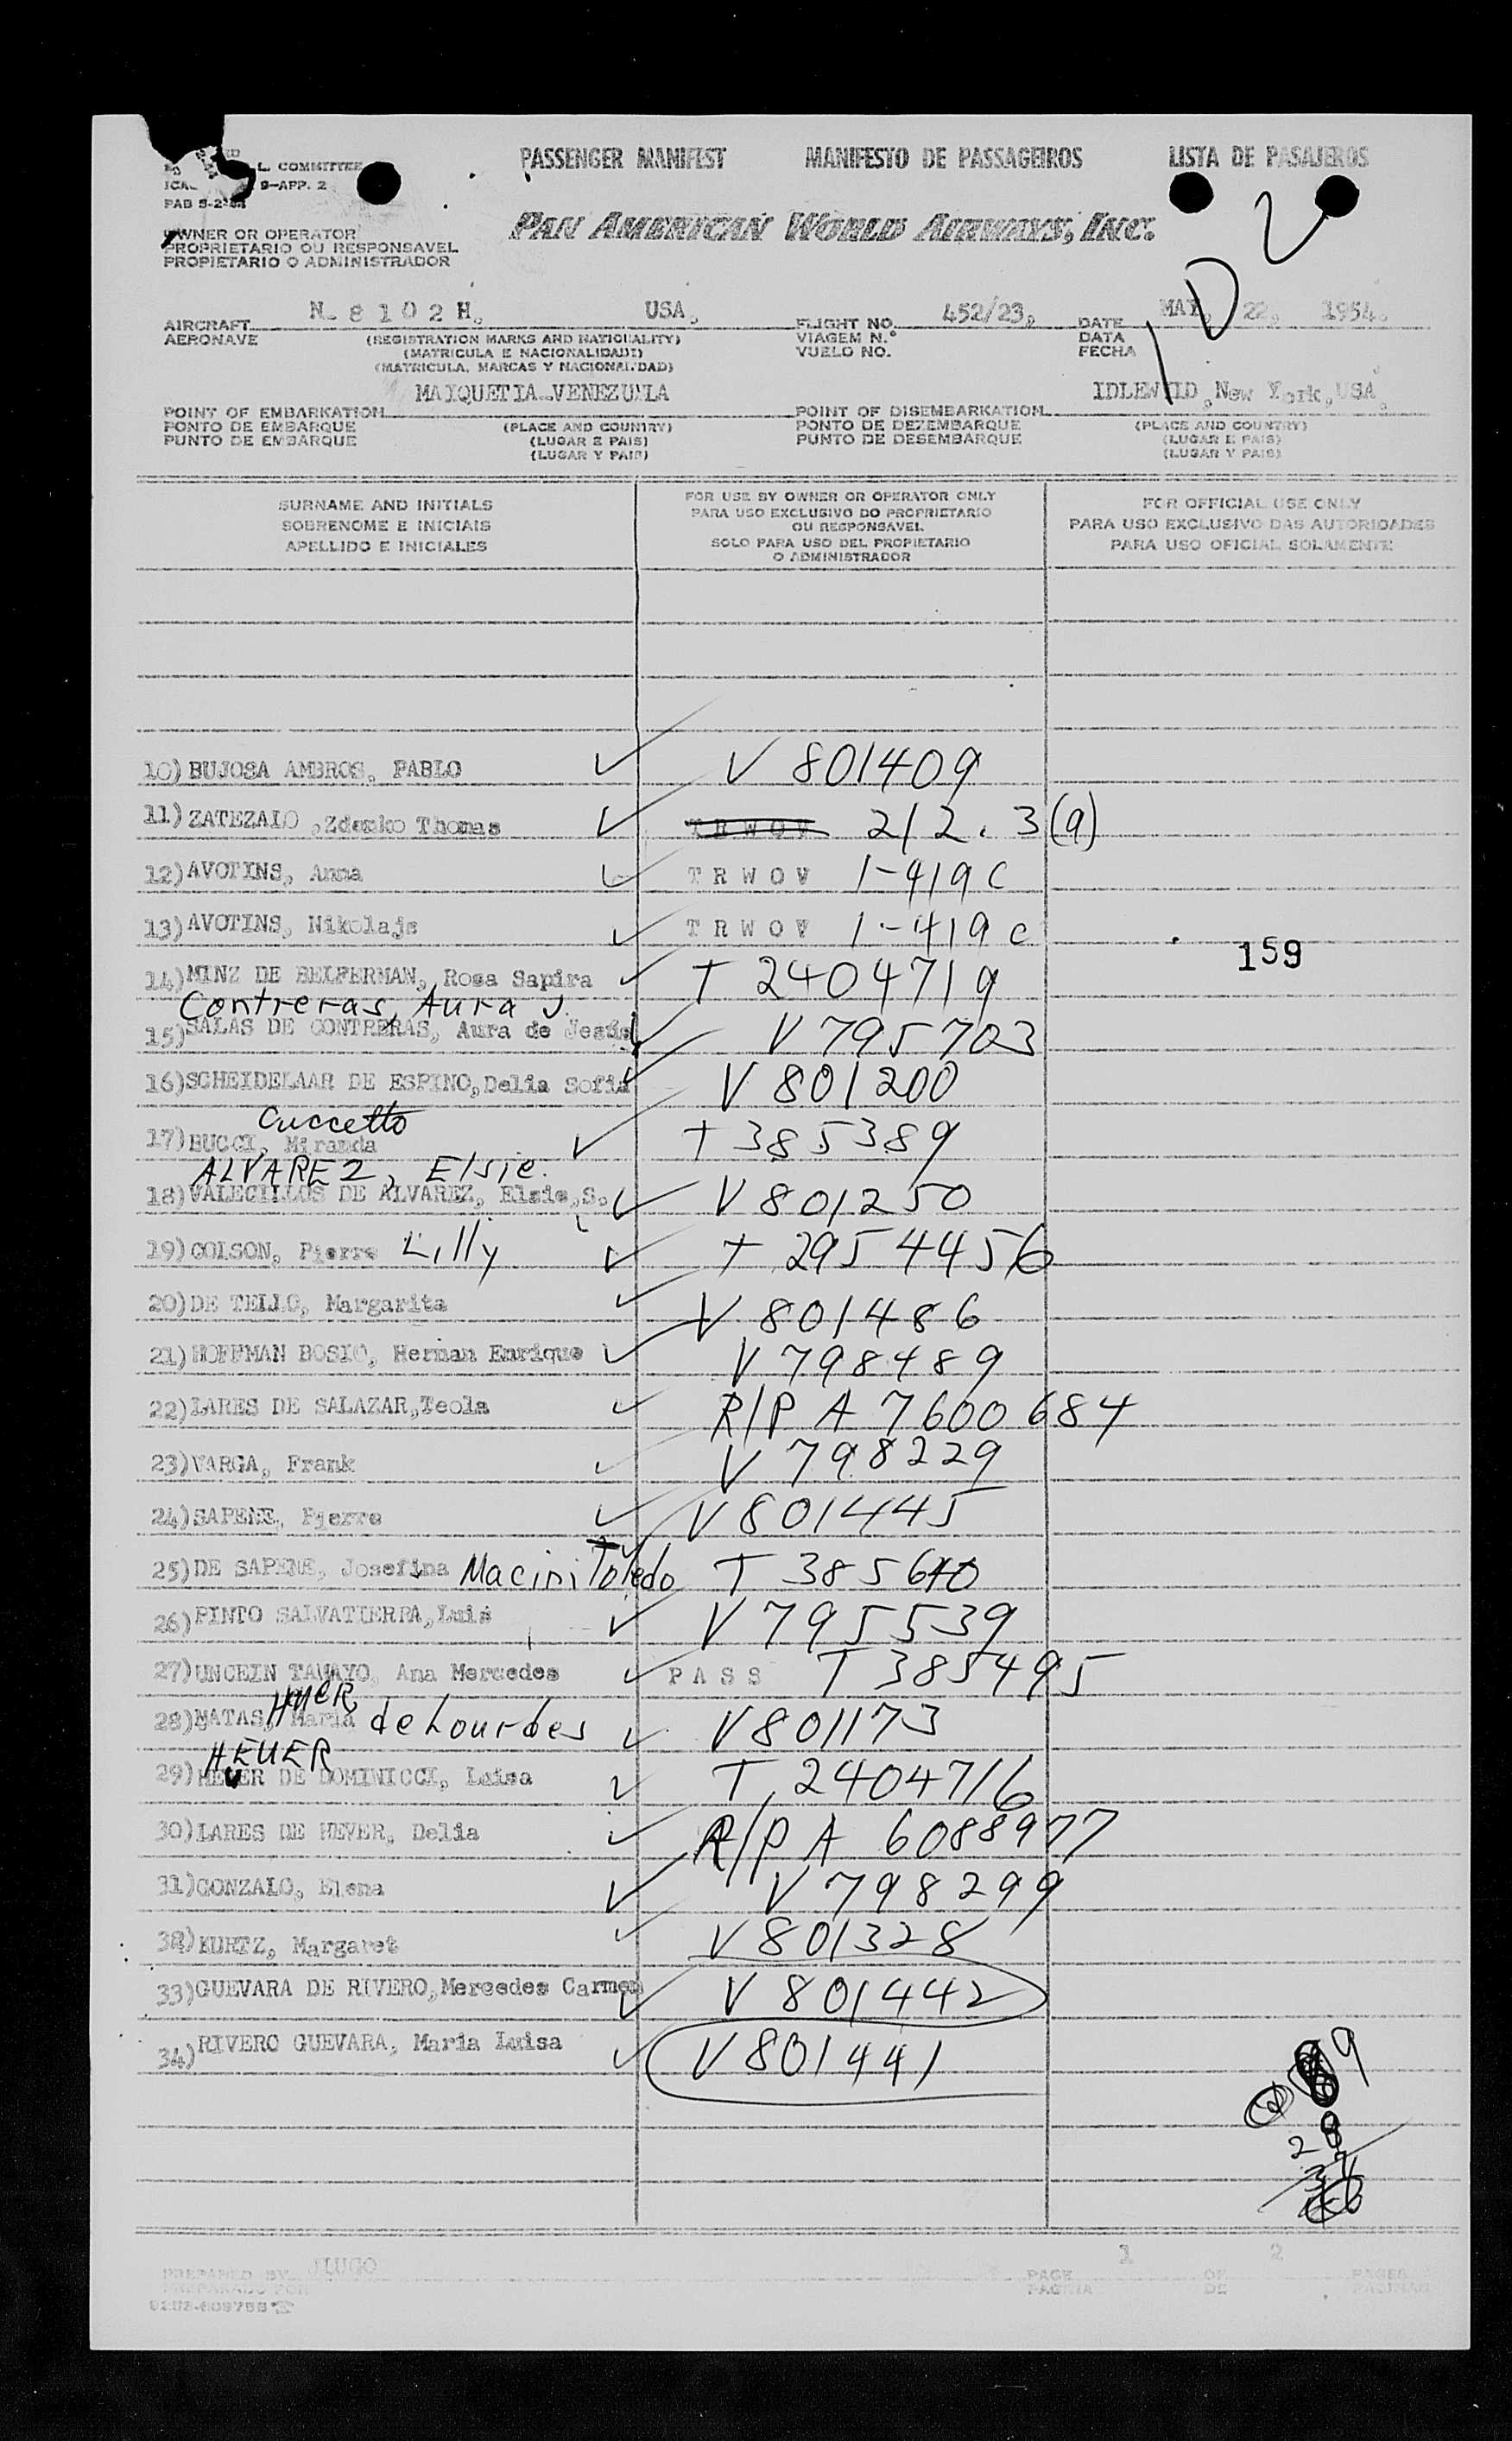 L. COMMITTEE
9-APP. 2
PAB 5-2-
PASSENGER MANIFEST MANIFESTO DE PASSAGEIROS LISTA DE PASAJEROS
PAN AMERICAN WORLD AIRWAYS, INC.
OWNER OR OPERATOR
PROPRIETARIO OU RESPONSAVEL
PROPIETARIO O ADMINISTRADOR
AIRCRAFT N- 8 1 0 2 H, USA, FLIGHT NO. 452/23, DATE MAY, 22, 1954.
AERONAVE (REGISTRATION MARKS AND NATIONALITY) VIAGEM N.º DATA
(MATRICULA E NACIONALIDADE) VUELO NO. FECHA
(MATRICULA, MARCAS Y NACIONALIDAD)
POINT OF EMBARKATION MAIQUETIA-VENEZUELA POINT OF DISEMBARKATION IDLEWILD, New York, USA,
PONTO DE EMBARQUE (PLACE AND COUNTRY) PONTO DE DEZEMBARQUE (PLACE AND COUNTRY)
PUNTO DE EMBARQUE (LUGAR E PAIS) PUNTO DE DESEMBARQUE (LUGAR E PAIS)
(LUGAR Y PAIS) (LUGAR Y PAIS)
SURNAME AND INITIALS
SOBRENOME E INICIAIS
APELLIDO E INICIALES
FOR USE BY OWNER OR OPERATOR ONLY
PARA USO EXCLUSIVO DO PROPRIETARIO
OU RESPONSAVEL
SOLO PARA USO DEL PROPIETARIO
O ADMINISTRADOR
FOR OFFICIAL USE ONLY
PARA USO EXCLUSIVO DAS AUTORIDADES
PARA USO OFICIAL SOLAMENTE
10) BUJOSA AMBROS, PABLO V 801409
11) ZATEZALO, Zdenko Thomas TRWOV 212.3(a)
12) AVOTINS, Anna TRWOV 1-419c
13) AVOTINS, Nikolajs TRWOV 1-419c
159
14) MINZ DE BELFERMAN, Rosa Sapira T 2404719
Contreras, Aura J.
15) SALAS DE CONTRERAS, Aura de Jesús V 795703
16) SCHEIDELAAR DE ESPINO, Delia Sofia V 801200
Cuccetto
17) BUCCI, Miranda T 385389
ALVAREZ, Elsie.
18) VALECILLOS DE ALVAREZ, Elsie, S. V 801250
19) COLSON, Pierre Lilly T 2954456
20) DE TELLO, Margarita V 801486
21) HOFFMAN BOSIO, Herman Enrique V 798489
22) LARES DE SALAZAR, Teola R/P A 7600684
23) VARGA, Frank V 798229
24) SAPENE, Pjerre V 801445
25) DE SAPENE, Josefina Macini Toledo T 385640
26) PINTO SALVATIERRA, Luis V 795539
27) UNCEIN TAMAYO, Ana Mercedes PASS T 385495
28) MATAS, Maria de Lourdes V 801173
HEUER
29) MEYER DE DOMINICCI, Luisa T 2404716
30) LARES DE MEYER, Delia R/P A 6088977
31) GONZALO, Elena V 798299
32) KURTZ, Margaret V 801328
33) GUEVARA DE RIVERO, Mercedes Carmen V 801442
34) RIVERO GUEVARA, Maria Luisa V 801441
PREPARED BY JLUGO PAGE 1 OF 2 PAGES
PREPARADO POR PAGINA DE PAGINAS